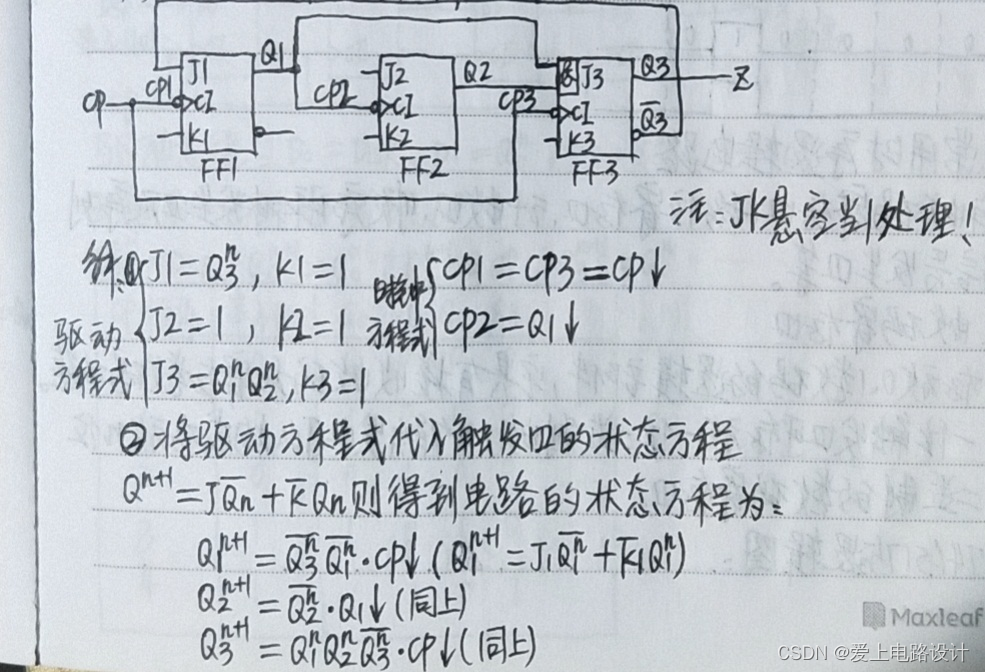 Q1 Q2 Q3 Z
CP CP1 J1 CI K1 CP2 J2 CI K2 CP3 &J3 CI K3 Q̅3
FF1 FF2 FF3
注:JK悬空当1处理!
解:① J1=Q₃ⁿ, K1=1 时钟 CP1=CP3=CP↓
驱动 J2=1, K2=1 方程式 CP2=Q1↓
方程式 J3=Q₁ⁿQ₂ⁿ, K3=1
②将驱动方程式代入触发器的状态方程
Qⁿ⁺¹=JQ̅n+K̅Qn则得到电路的状态方程为:
Q₁ⁿ⁺¹=Q̅₃ⁿQ̅₁ⁿ·CP↓(Q₁ⁿ⁺¹=J₁Q̅₁ⁿ+K̅₁Q₁ⁿ)
Q₂ⁿ⁺¹=Q̅₂ⁿ·Q₁↓(同上)
Q₃ⁿ⁺¹=Q₁ⁿQ₂ⁿQ̅₃ⁿ·CP↓(同上)
Maxleaf
CSDN @爱上电路设计